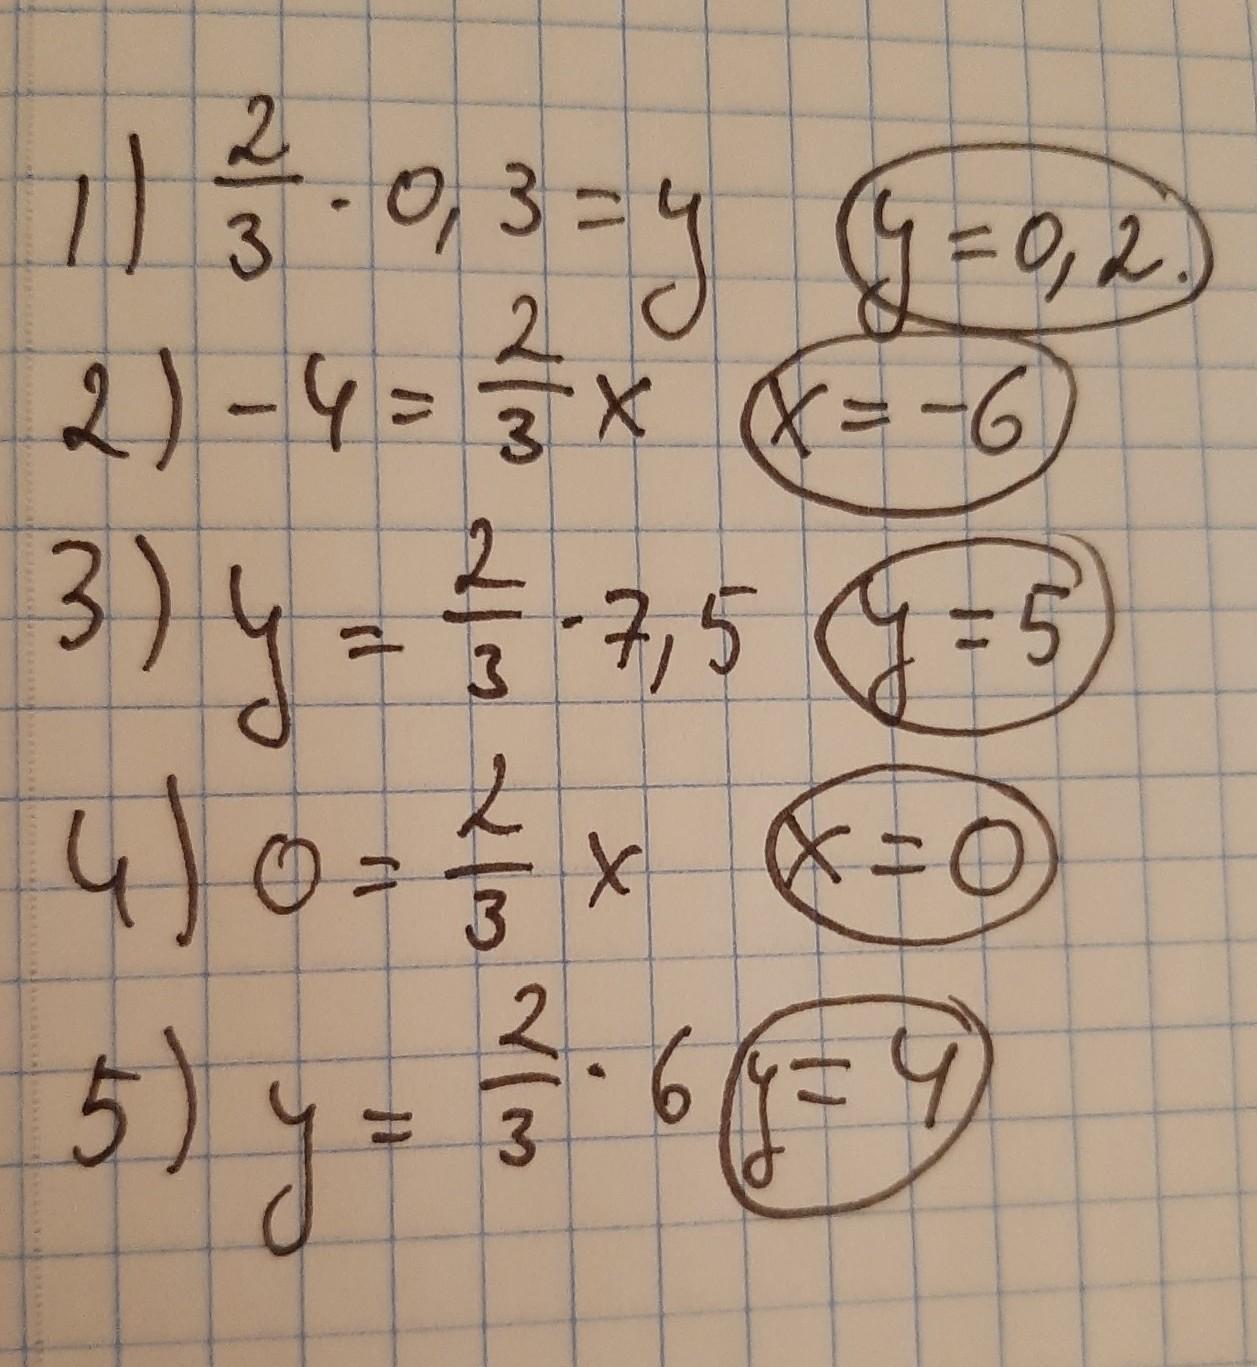 1) 2/3 · 0,3 = y y = 0,2.
2) -4 = 2/3 x x = -6
3) y = 2/3 · 7,5 y = 5
4) 0 = 2/3 x x = 0
5) y = 2/3 · 6 y = 4